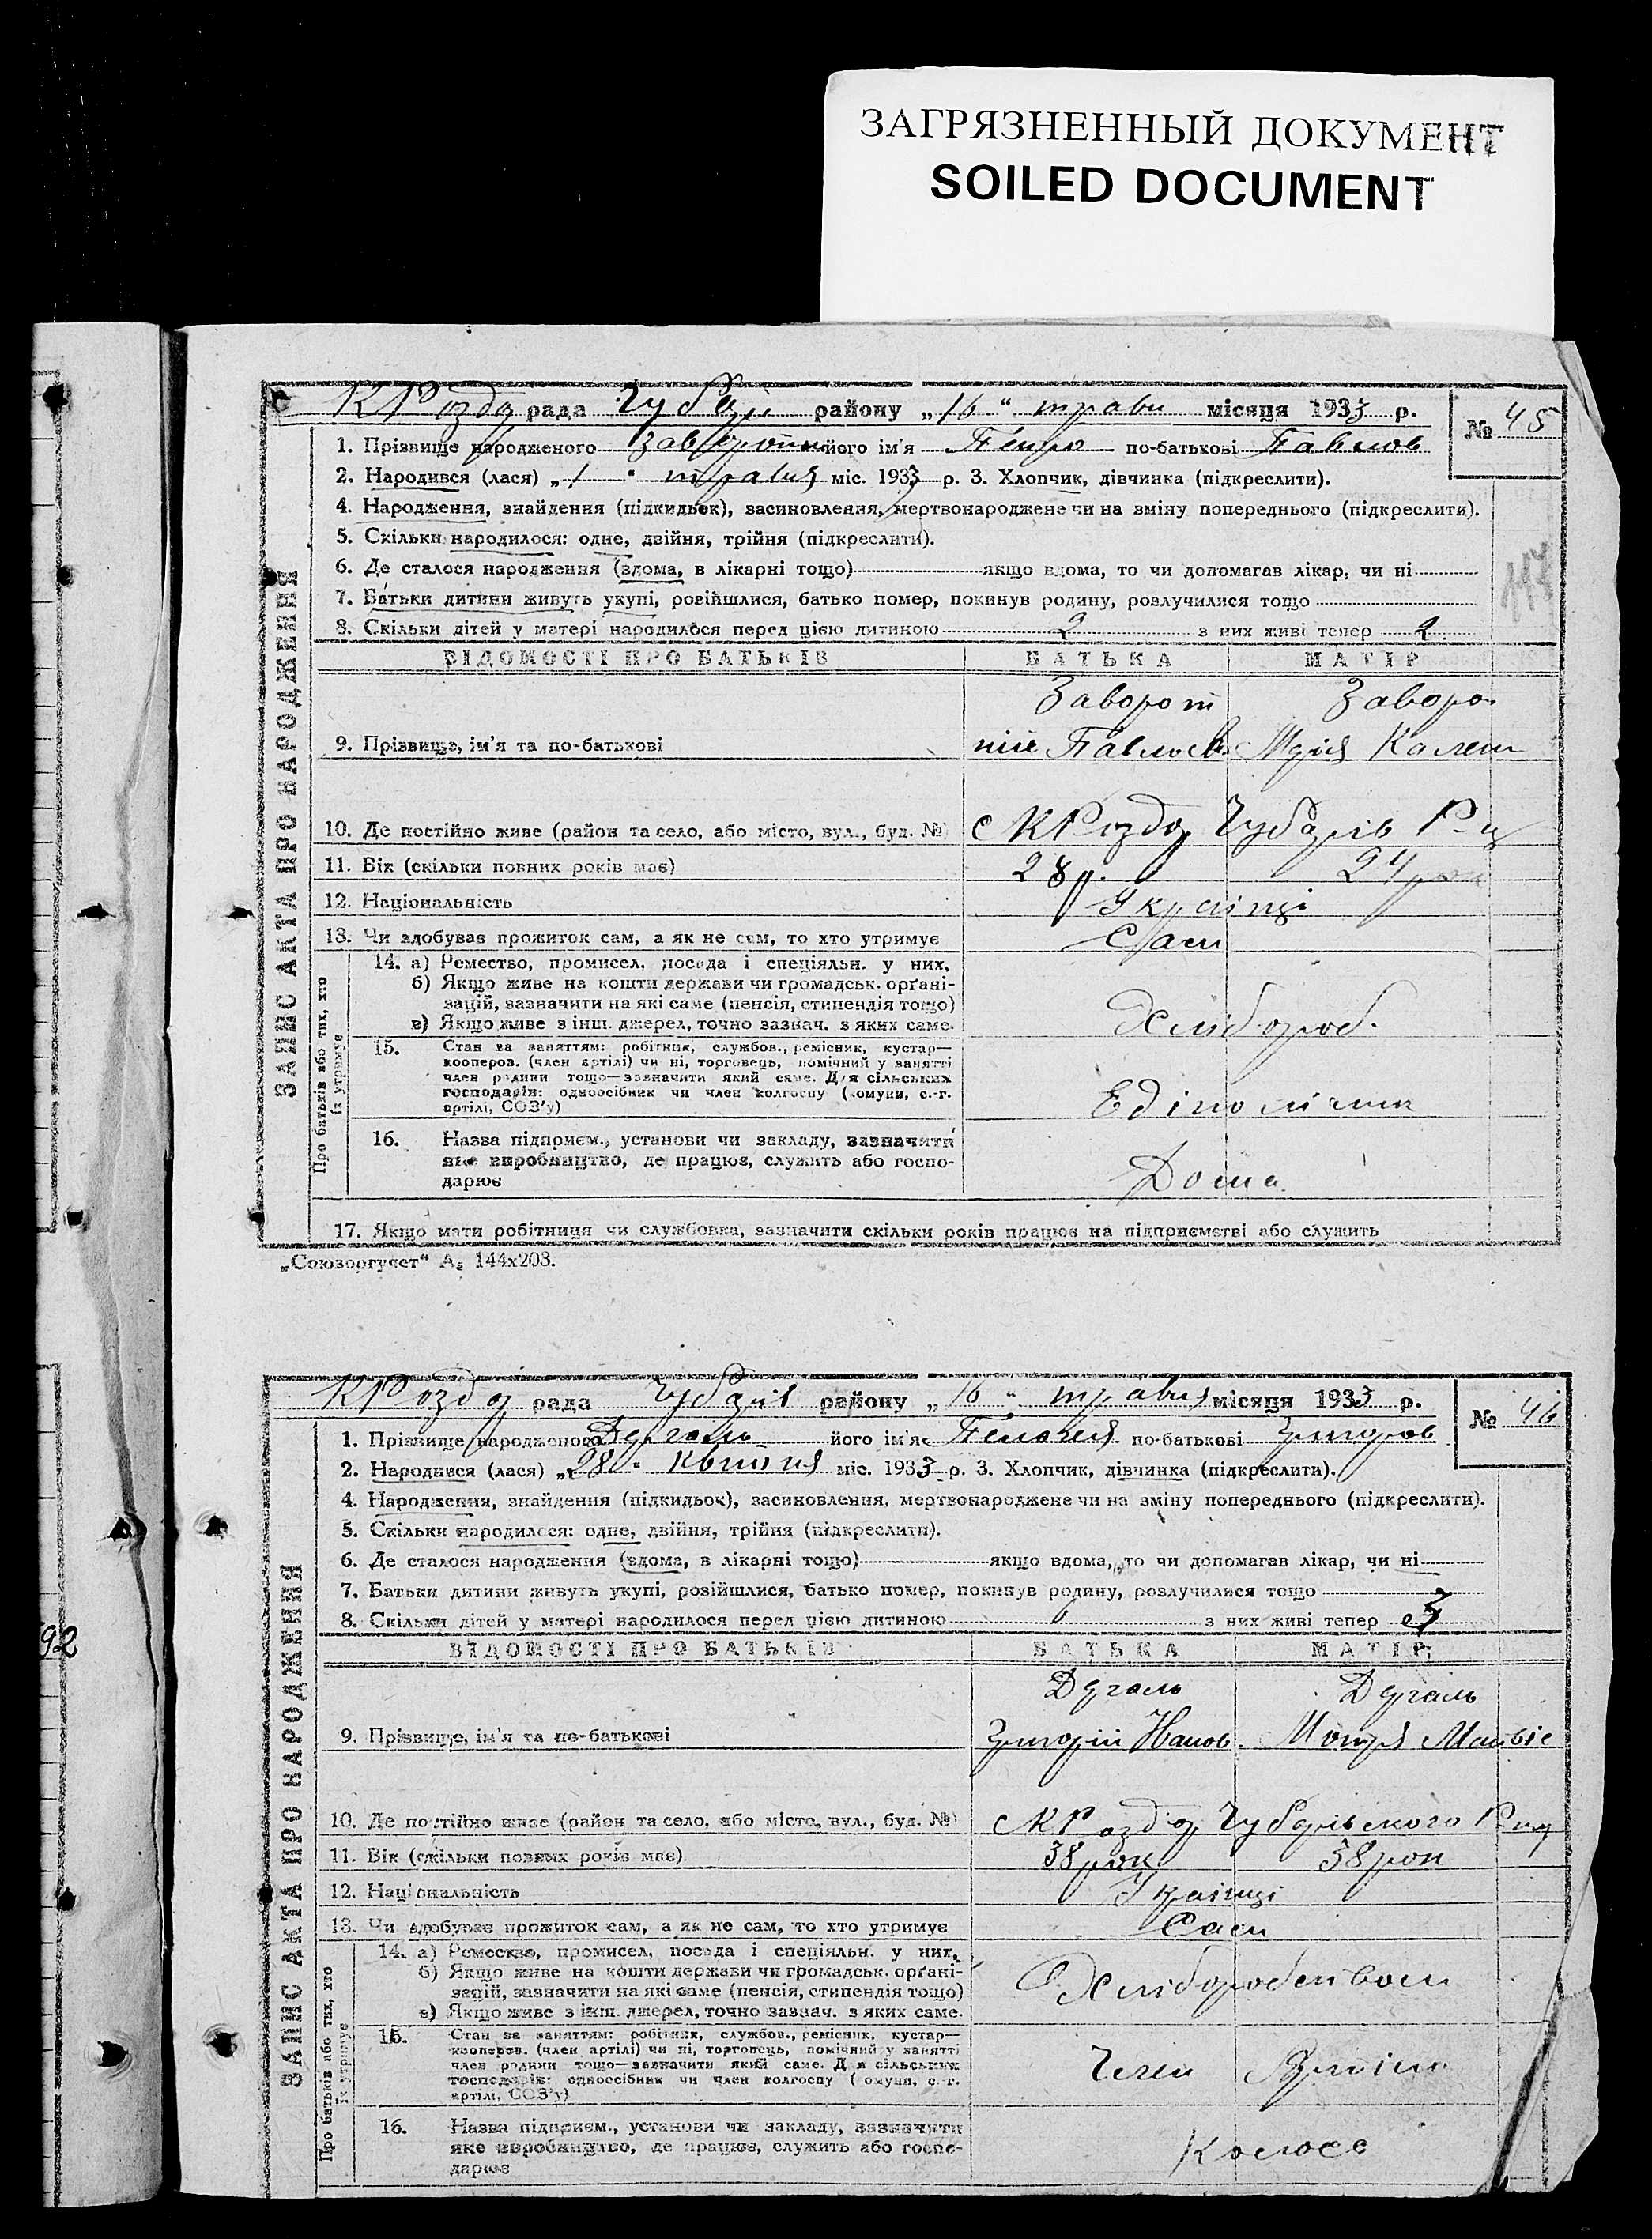 ЗАГРЯЗНЕННЫЙ ДОКУМЕНТ
SOILED DOCUMENT
рада району „16“ травн місяця 1933 р.
№ 45
1. Прізвище народженого його ім'я Петро по-батькові Павлов
2. Народився (лася) „1“ травня міс. 1933 р. 3. Хлопчик, дівчинка (підкреслити).
4. Народження, знайдення (підкидьок), засиновлення, мертвонароджене чи на зміну попереднього (підкреслити).
5. Скільки народилося: одне, двійня, трійня (підкреслити).
6. Де сталося народження (вдома, в лікарні тощо) якщо вдома, то чи допомагав лікар, чи ні
7. Батьки дитини живуть укупі, розійшлися, батько помер, покинув родину, розлучилися тощо
8. Скільки дітей у матері народилося перед цією дитиною 2 з них живі тепер 2
ЗАПИС АКТА ПРО НАРОДЖЕННЯ
ВІДОМОСТІ ПРО БАТЬКІВ БАТЬКА МАТІР
Заворот Заворо
9. Прізвище, ім'я та по-батькові ній Павло Марія
10. Де постійно живе (район та село, або місто, вул., буд. №) с
11. Вік (скільки повних років має) 28 р. 24 рок
12. Національність Українці
13. Чи здобував прожиток сам, а як не сам, то хто утримує Сам
Про батьків або тих, хто їх утримує
14. а) Ремество, промисел, посада і спеціяльн. у них.
б) Якщо живе на кошти держави чи громадськ. орґані-
зацій, зазначити на які саме (пенсія, стипендія тощо)
Хлібороб.
в) Якщо живе з інш. джерел, точно зазнач. з яких саме.
15. Стан за заняттям: робітник, службов., ремісник, кустар—
кооперов. (член артілі) чи ні, торговець, помічний у занятті
член родини тощо—зазначити який саме. Для сільських
господарів: одноосібник чи член колгоспу (комуни, с.-г.
артілі, СОЗ'у)
16. Назва підприєм., установи чи закладу, зазначити
яке виробництво, де працює, служить або госпо-
дарює
Дома
17. Якщо мати робітниця чи службовка, зазначити скільки років працює на підприємстві або служить
„Союзоргучет“ А₅ 144х203.
рада району „16“ травня місяця 1933 р.
№ 46
1. Прізвище народженого його ім'я Пелагея по-батькові Григоров
2. Народився (лася) „28“ квітня міс. 1933 р. 3. Хлопчик, дівчинка (підкреслити).
4. Народження, знайдення (підкидьок), засиновлення, мертвонароджене чи на зміну попереднього (підкреслити).
5. Скільки народилося: одне, двійня, трійня (підкреслити).
6. Де сталося народження (вдома, в лікарні тощо) якщо вдома, то чи допомагав лікар, чи ні
7. Батьки дитини живуть укупі, розійшлися, батько помер, покинув родину, розлучилися тощо
8. Скільки дітей у матері народилося перед цією дитиною з них живі тепер 3
92
ЗАПИС АКТА ПРО НАРОДЖЕННЯ
ВІДОМОСТІ ПРО БАТЬКІВ БАТЬКА МАТІР
Дугаль Дугаль
9. Прізвище, ім'я та по-батькові Григорій Мотря
10. Де постійно живе (район та село, або місто, вул., буд. №) с
11. Вік (скільки повних років має) 38 рок 38 рок
12. Національність Українці
13. Чи здобував прожиток сам, а як не сам, то хто утримує Сам
Про батьків або тих, хто їх утримує
14. а) Ремество, промисел, посада і спеціяльн. у них.
б) Якщо живе на кошти держави чи громадськ. орґані-
зацій, зазначити на які саме (пенсія, стипендія тощо)
Хлібороб
в) Якщо живе з інш. джерел, точно зазнач. з яких саме.
15. Стан за заняттям: робітник, службов., ремісник, кустар—
кооперов. (член артілі) чи ні, торговець, помічний у занятті
член родини тощо—зазначити який саме. Для сільських
господарів: одноосібник чи член колгоспу (комуни, с.-г.
артілі, СОЗ'у)
Член Артіли
16. Назва підприєм., установи чи закладу, зазначити
яке виробництво, де працює, служить або госпо-
дарює
Колосс